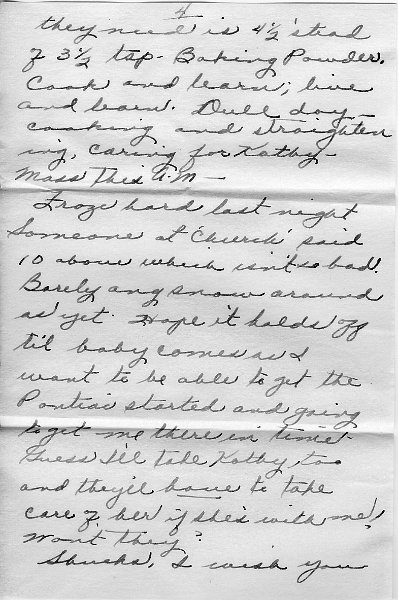 4
they need is 4½ 'stead
of 3½ tsp - Baking Powder.
Cook and learn; live
and learn. Dull day -
cooking and straighten
ing, caring for Kathy -
Mass this A.M -
Froze hard last night
Someone at 'Church' said
10 above which isn't so bad.
Barely any snow around
as yet. Hope it holds off
til baby comes as I
want to be able to get the
Pontiac started and going
to get me there in time.
Guess I'll take Kathy too
and they'll have to take
care of her if she's with me!
Won't they?
Shucks, I wish you